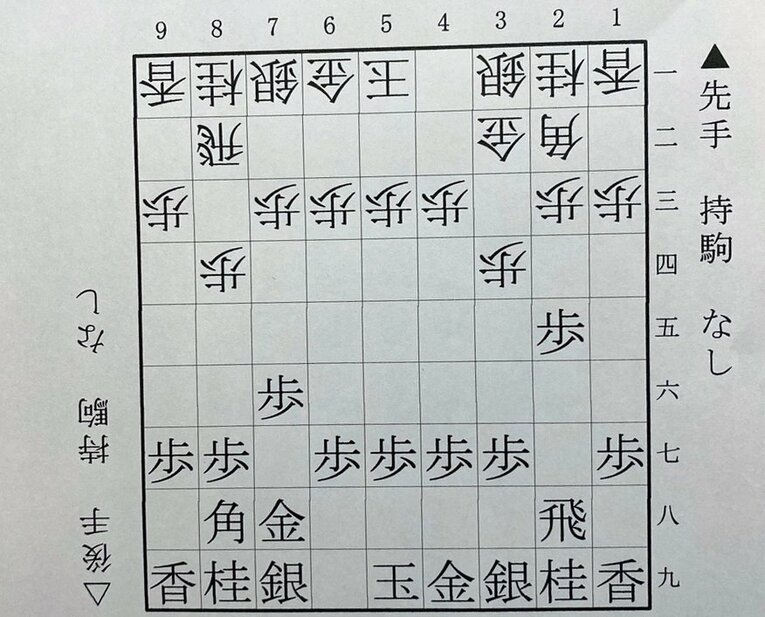 9 8 7 6 5 4 3 2 1
香 桂 銀 金 王 銀 桂 香 一
飛 金 角 二
歩 歩 歩 歩 歩 歩 歩 三
歩 歩 四
歩 五
歩 六
歩 歩 歩 歩 歩 歩 歩 七
角 金 飛 八
香 桂 銀 玉 金 銀 桂 香 九
▲先手 持駒 なし
△後手 持駒 なし